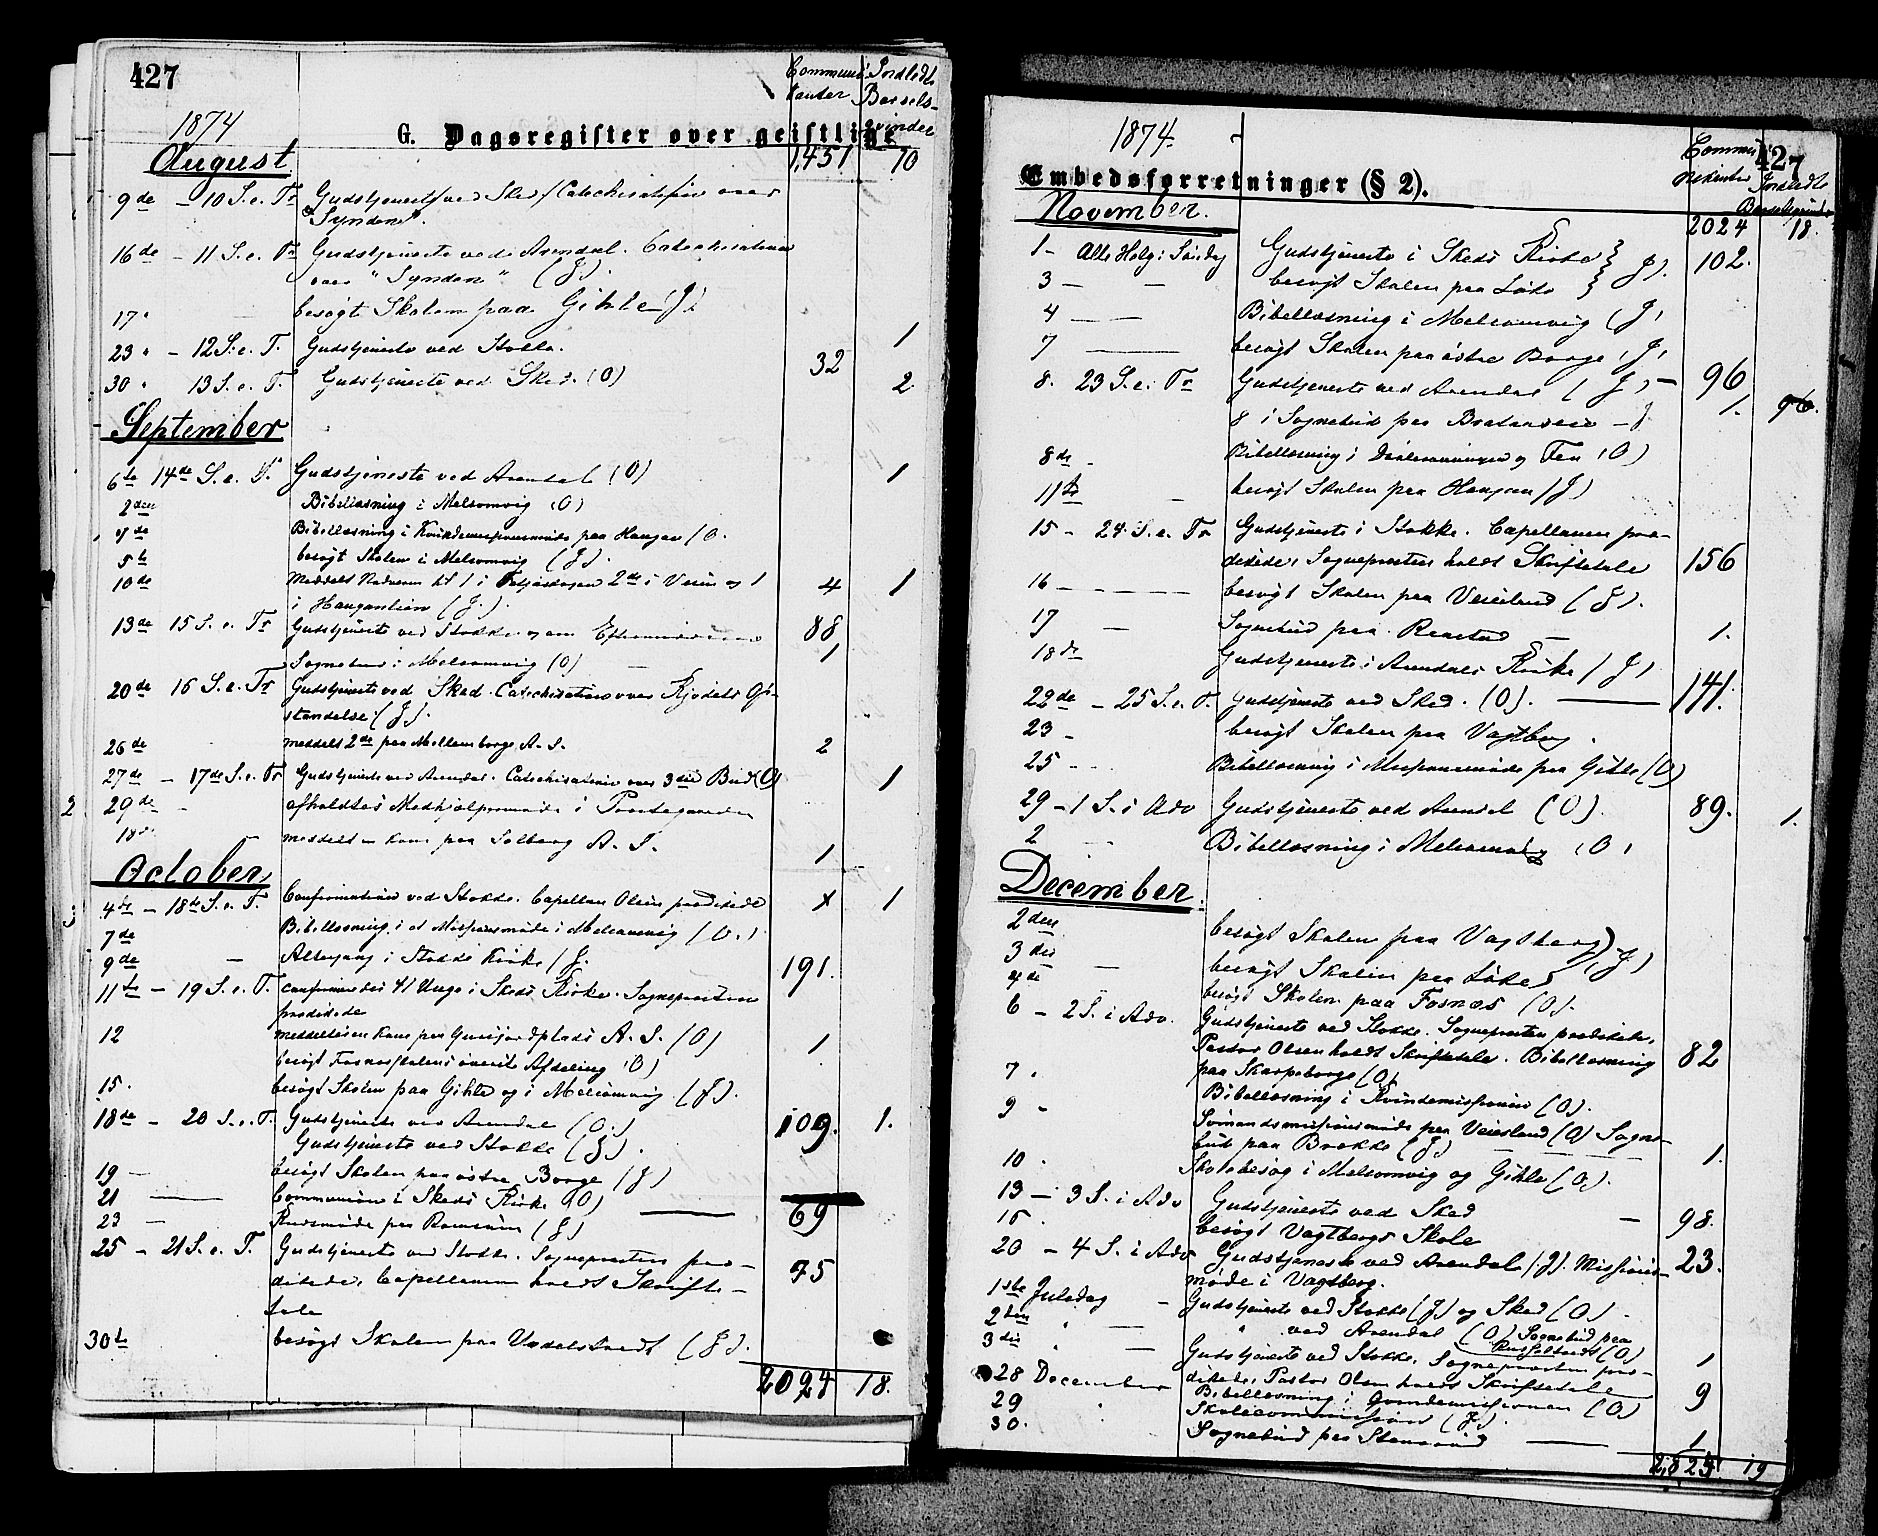 427
1874
G. Dagsregister over geistlige
Communi- Indledte
kanter Barsels-
qvinder
August 1,451 10
9de - 10 S. e. Tr Gudstjeneste ved Sked / Catechisation over
"Synden".
16de - 11 S. e. Tr Gudstjeneste ved Arendal. Catechisation
over "Synden" (J).
17 besøgt Skolen paa Gihle (J)
23 - 12 S. e. T. Gudstjeneste ved Stokke. 1
32
30 13 S. e. T. Gudstjeneste ved Sked. (O) 2
September
6te 14de S. e. T. Gudstjeneste ved Arendal (O) 1
2den Bibellæsning i Melsomvig (O)
4de Bibellæsning i Kvindemissionsmøde paa Haugan (O.
5te besøgt Skolen i Melsomvig (J).
10de Meddelt Nadveren til 1 i 2de i Veien og 1 4 1
i Haugantien (J.).
13de 15 S. e. Tr Gudstjeneste ved Stokke og om Eftermiddagen 88
Sognebud i Melsomvig (O) 1
20de 16 S. e. Tr Gudstjeneste ved Sked. Catechisation over Kjødets Op-
standelse (J).
26de meddelt 2de paa Mellemborge A. S. 2
27de - 17de S. e. Tr Gudstjeneste ved Arendal. Catechisation over 3die Bud (O) 1
29de - afholdtes Medhjælpermøde i Præstegaarden
18de meddelt en Kone paa Solberg A. S. 1
October
4de - 18de S. e. T. Confirmation ved Stokke. Capellan Olsen prædikede x 1
7de Bibellæsning i et Missionsmøde i Melsomvig (O.)
9de - Altergang i Stokke Kirke (J. 191.
11te - 19 S. e. T. confirmeredes 41 Unge i Skeds Kirke. Sognepræsten
prædikede
12 meddelt en Kone paa Gursjordplads A. S. (O) 1
besøgt Fosnæsskolens øverste Afdeling (O)
15. besøgt Skolen paa Gihle og i Melsomvig (J).
18de - 20 S. e. T. Gudstjeneste ved Arendal (O.) 109. 1.
Gudstjeneste ved Stokke (J).
19 - besøgt Skolen paa østre Borge (J)
21 Communion i Skeds Kirke (O) 69
23 - Kredsmøde paa Ramsum (J)
25 - 21 S. e. T. Gudstjeneste ved Stokke. Sognepræsten præ-
dikede, Capellanen holdt Skrifte- 75
tale
30te besøgt Skolen paa Undelstvedt (J).
2024 18.
1874.
427
Embedsforretninger (§ 2).
Commu-
nikanter Indledte
Barselqvinder
November. 2024 18.
1 - Alle Helg: Søndag Gudstjeneste i Skeds Kirke } J). 102.
3 - - besøgt Skolen paa Løke }
4 - - Bibellæsning i Melsomvig (J)
7 besøgt Skolen paa østre Borge (J)
8. 23 S. e. Tr Gudstjeneste ved Arendal (J) - 96
8 i Sognebud paa Bratanseie - J. 1. 96.
8de - Bibellæsning i og Fen (O)
11te - besøgt Skolen paa Haugan (J)
15 - 24 S. e. Tr Gudstjeneste i Stokke. Capellanen præ-
dikede, Sognepræsten holdt Skriftetale 156
16 - besøgt Skolen paa Veierland (J).
17 - Sognebud paa Rerstad - 1.
18de Gudstjeneste i Arendals Kirke (J)
22de - 25 S. e. T. Gudstjeneste ved Sked. (O). 141.
23 - besøgt Skolen paa Vagtberg.
25 - Bibellæsning i Missionsmøde paa Gihle (O)
29 - 1 S. i Adv Gudstjeneste ved Arendal (O). 89. 1.
2 Bibellæsning i Melsomvig (O)
December.
2den besøgt Skolen paa Vagtberg )
3die - besøgt Skolen paa Løke ) (J)
4de besøgt Skolen paa Fosnæs (O).
6 - 2 S. i Adv. Gudstjeneste ved Stokke. Sognepræsten prædikede,
Pastor Olsen holdt Skriftetale. Bibellæsning 82
7. paa Skarpeborge (O)
Bibellæsning i Kvindemissionen (O).
9 - Sømandsmissionsmøde paa Veierland (O) Sogne-
bud paa Brække (J) 1.
10. Skolebesøg i Melsomvig og Gihle (O).
13 - 3 S. i Adv Gudstjeneste ved Sked - 98.
15. besøgt Vagtbergs Skole
20 - 4 S. i Adv Gudstjeneste ved Arendal (J). Missions- 23.
møde i Vagtberg.
1ste Juledag - Gudstjeneste ved Stokke (J) og Sked (O) -
2den " - " ved Arendal (O) Sognebud paa
(O) 1
3die - Gudstjeneste ved Stokke. Sognepræsten præ-
dikede, Pastor Olsen holdt Skriftetale 9
28 December Bibellæsning i Qvindemissionen (O)
29 Skolecommission (J).
30. Sognebud paa 1
2,825 19